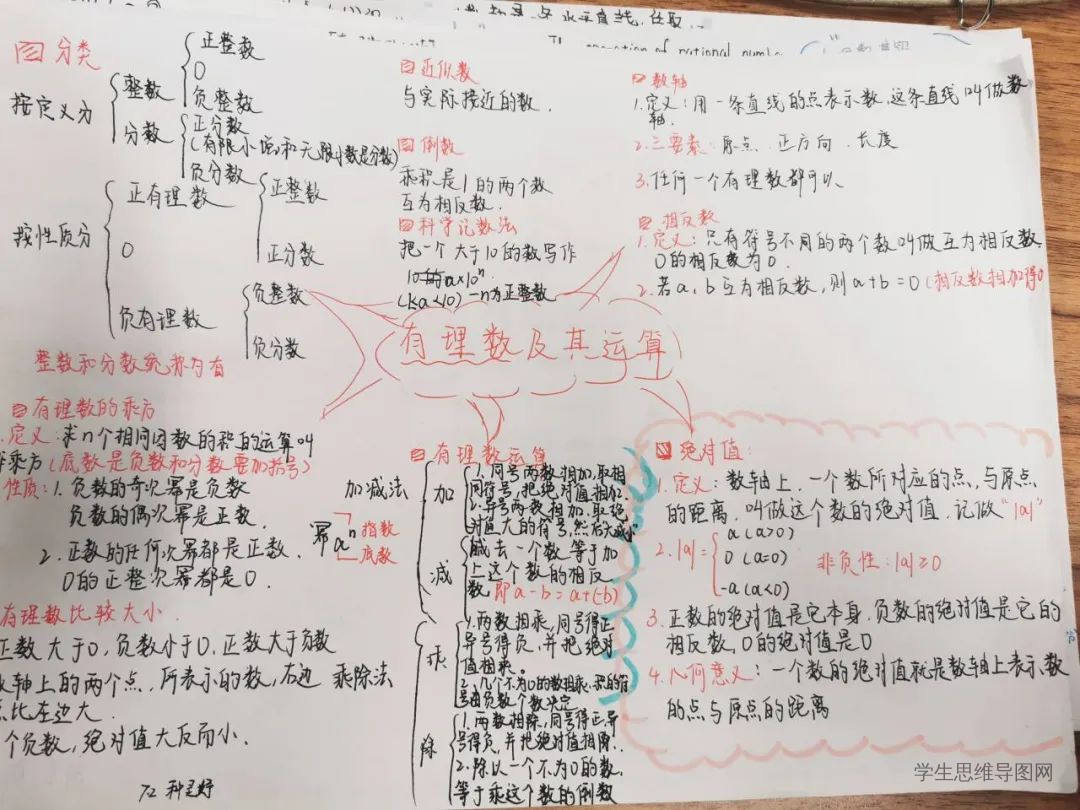 The operation of rational numb
分类
按定义分
整数
正整数
0
负整数
分数
正分数
(有限小
和无限
小数是分数)
负分数
按性质分
正有理数
正整数
正分数
0
负有理数
负整数
负分数
整数和分数统称为有
近似数
与实际接近的数.
倒数
乘积是1的两个数
互为相反数.
科学记数法
把一个大于10的数写作
a×10ⁿ
(1≤a<10) n为正整数
数轴
1.定义:用一条直线的点表示数,这条直线叫做数
轴.
2.三要素:原点.正方向.长度
3.任何一个有理数都可以
相反数
1.定义:只有符号不同的两个数叫做互为相反数,
0的相反数为0.
2.若a,b互为相反数,则a+b=0(相反数相加得0
有理数及其运算
有理数的乘方
定义:求n个相同因数的积的运算叫
乘方(底数是负数和分数要加括号)
性质:1.负数的奇次幂是负数
负数的偶次幂是正数.
2.正数的任何次幂都是正数.
0的正整次幂都是0.
幂 aⁿ 指数
底数
有理数比较大小.
正数大于0,负数小于0,正数大于负数
轴上的两个点.所表示的数,右边
比左边大.
个负数,绝对值大反而小.
72
有理数运算
加减法
加
1.同号两数相加,取相
同符号,把绝对值相加.
2.异号两数相加,取绝
对值大的符号,然后大减小
减
减去一个数等于加
上这个数的相反
数 即a-b=a+(-b)
乘除法
乘
1.两数相乘,同号得正
异号得负,并把绝对
值相乘.
2.几个不为0的数相乘,积的符
号由负数个数决定
除
1.两数相除,同号得正,异
号得负,并把绝对值相除.
2.除以一个不为0的数,
等于乘这个数的倒数
绝对值:
1.定义:数轴上.一个数所对应的点,与原点
的距离.叫做这个数的绝对值.记做"|a|"
2.|a|=
a(a>0)
0(a=0)
-a(a<0)
非负性:|a|≥0
3.正数的绝对值是它本身.负数的绝对值是它的
相反数,0的绝对值是0
4.几何意义:一个数的绝对值就是数轴上表示数
的点与原点的距离
学生思维导图网